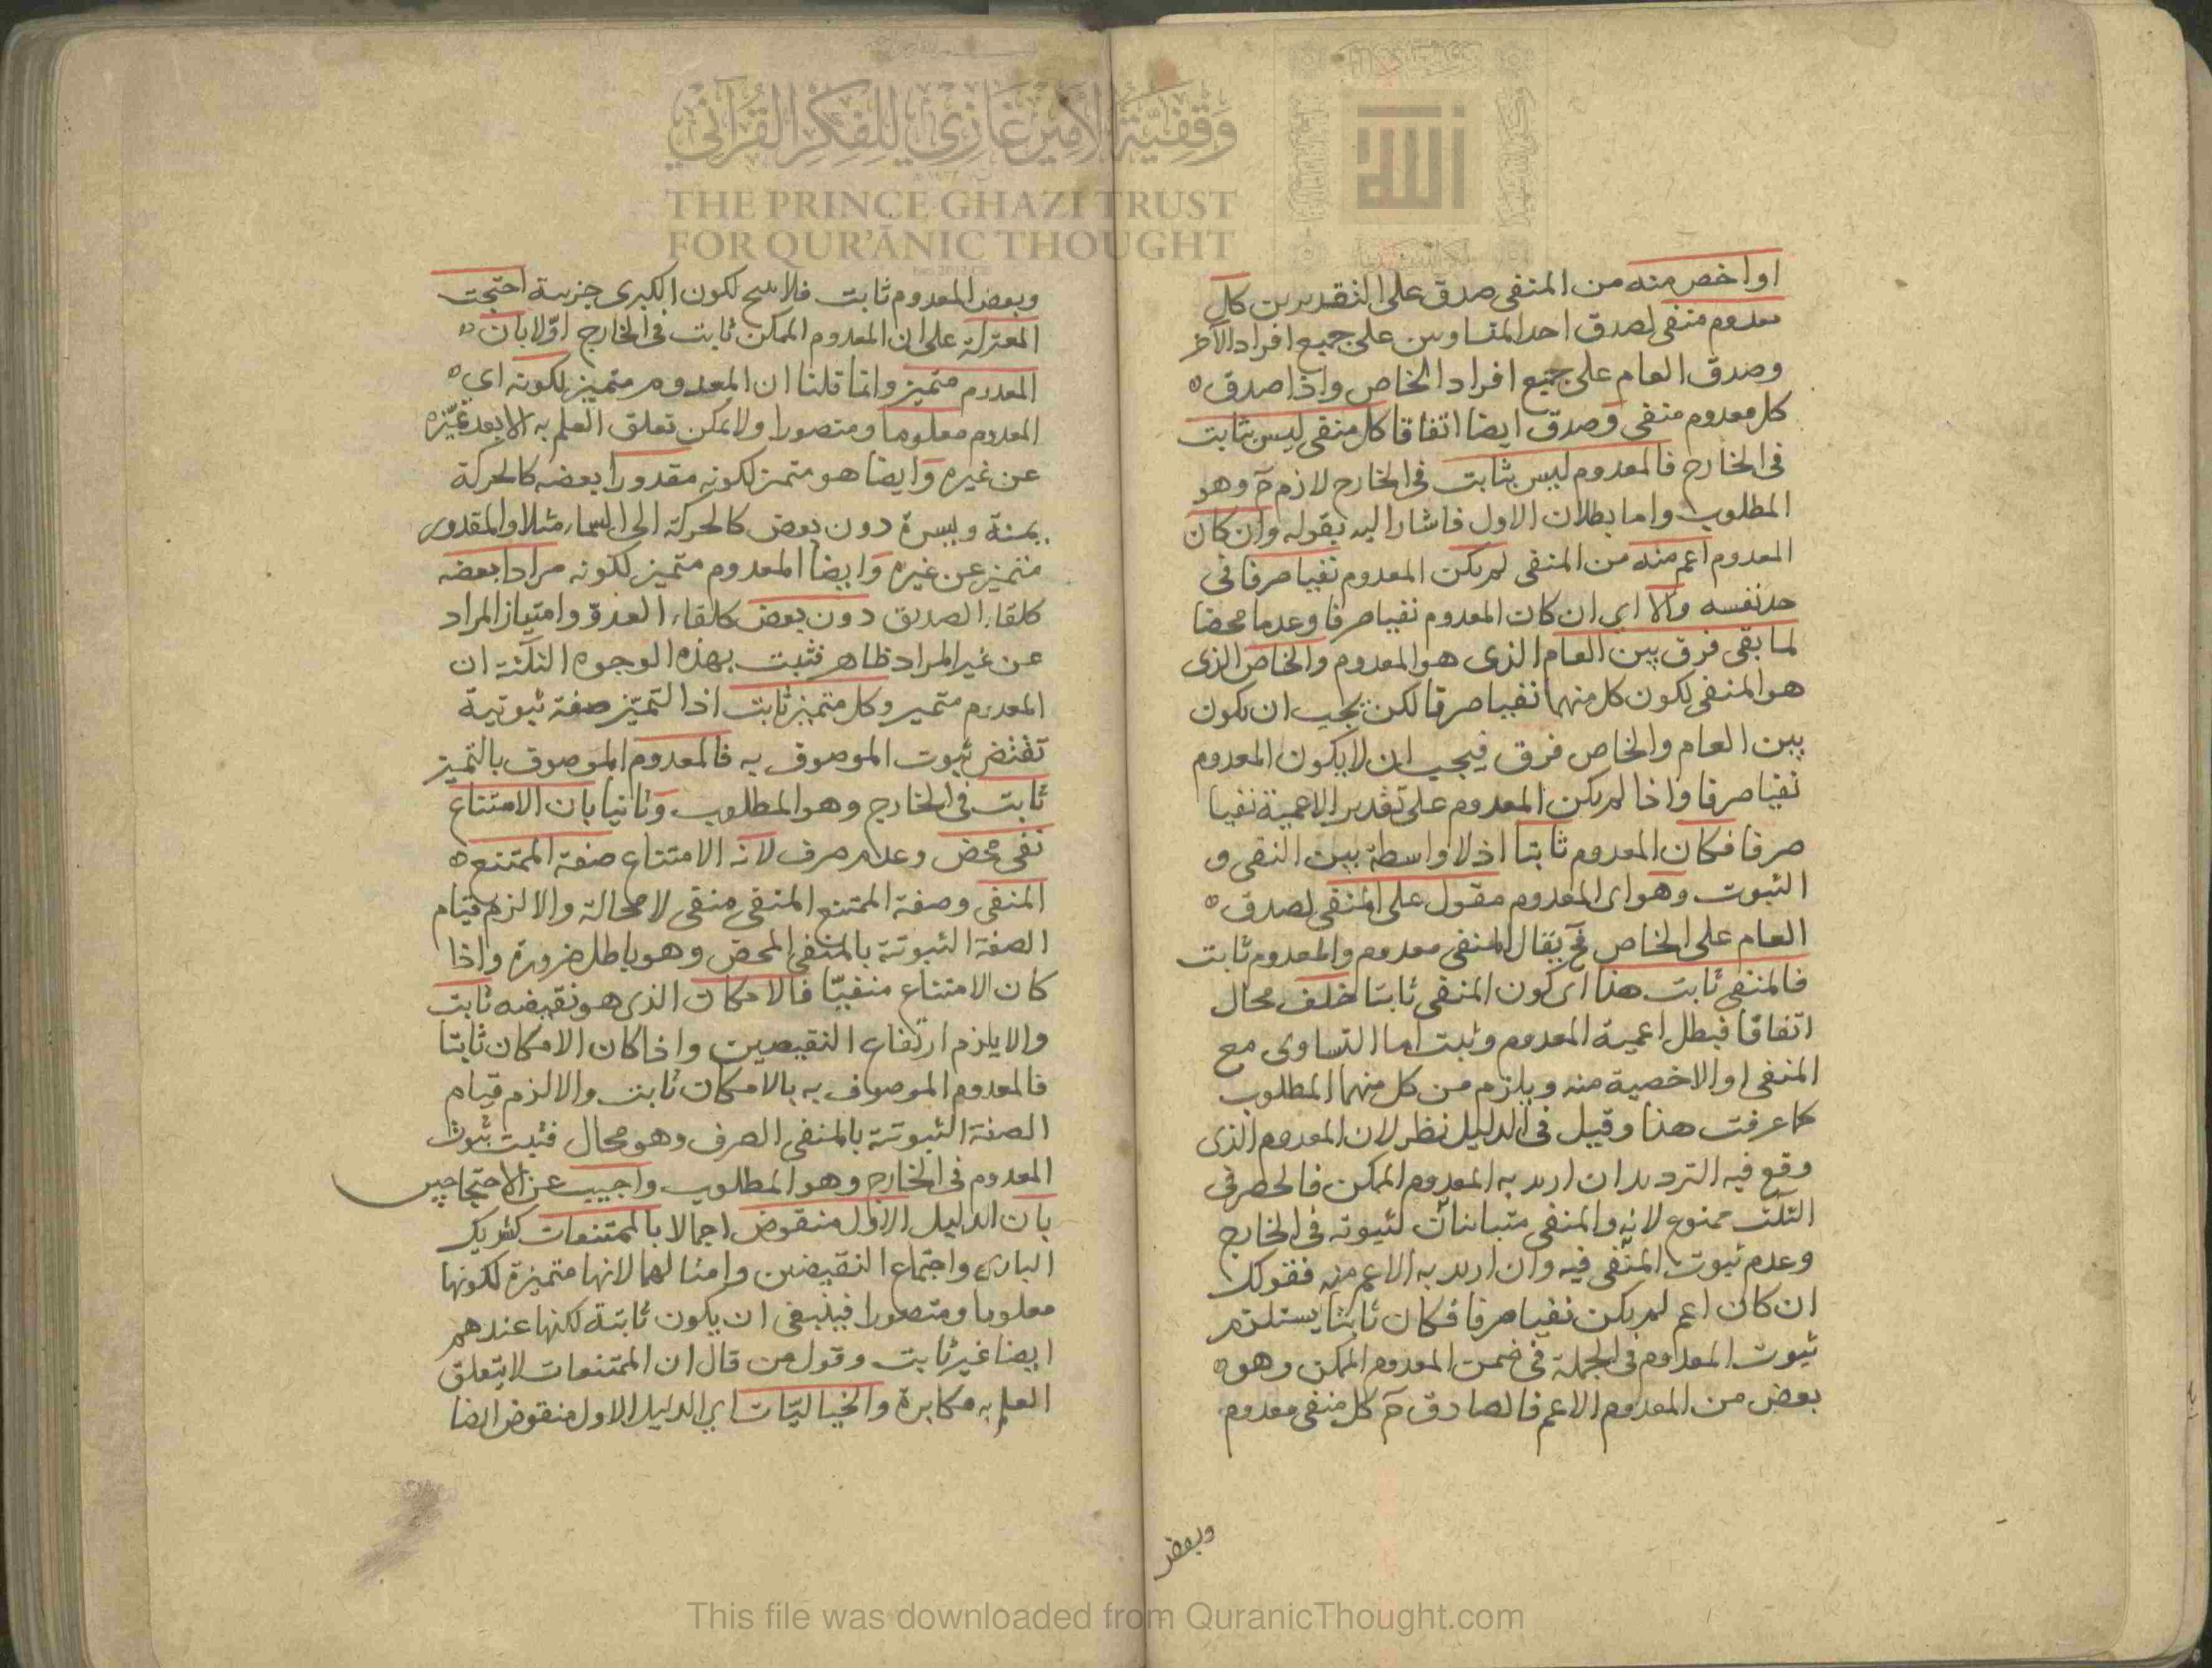 او اخص منه من المنفى صدق على التقديرين كل
معدوم منفى لصدق احد المتساوين على جميع افراد الآخر
وصدق العام على جميع افراد الخاص واذا صدق
كل معدوم منفى وصدق ايضا اتفاقا كل منفى ليس بثابت
فى الخارج فالمعدوم ليس بثابت فى الخارج لازم ح وهو
المطلوب واما بطلان الاول فاشار اليه بقوله وان كان
المعدوم اعم منه من المنفى لم يكن المعدوم نفيا صرفا فى
حد نفسه والا اي ان كان المعدوم نفيا صرفا وعدما محضا
لما بقى فرق بين العام الذى هو المعدوم والخاص الذى
هو المنفى لكون كل منهما نفيا صرفا لكن يجب ان يكون
بين العام والخاص فرق فيجب ان لا يكون المعدوم
نفيا صرفا واذا لم يكن المعدوم على تقدير الاعمية نفيا
صرفا فكان المعدوم ثابتا اذ لا واسطة بين النفى و
الثبوت وهو اى المعدوم مقول على المنفى لصدق
العام على الخاص فح يقال المنفى معدوم والمعدوم ثابت
فالمنفى ثابت هذا اى كون المنفى ثابتا خلف محال
اتفاقا فبطل اعمية المعدوم وثبت اما التساوى مع
المنفى او الاخصية منه ويلزم من كل منهما المطلوب
كما عرفت هذا وقيل فى الدليل نظر لان المعدوم الذى
وقع فيه الترديد ان اريد به المعدوم الممكن فالحصر فى
الثلث ممنوع لانه والمنفى متباينان لثبوته فى الخارج
وعدم ثبوت المنفى فيه وان اريد به الاعم منه فقولك
ان كان اعم لم يكن نفيا صرفا فكان ثابتا يستلزم
ثبوت المعدوم فى الجملة فى ضمن المعدوم الممكن وهو
بعض من المعدوم الاعم فالصادق ح كل منفى معدوم
وبعض
وبعض المعدوم ثابت فلا ينتج لكون الكبرى جزئية احتجت
المعتزلة على ان المعدوم الممكن ثابت فى الخارج اوّلا بان
المعدوم متميز وانما قلنا ان المعدوم متميز لكونه اي
المعدوم معلوما ومتصورا ولا يمكن تعلق العلم به الا بعد تميّزه
عن غيره وايضا هو متميز لكونه مقدورا بعضه كالحركة
يمنة ويسرة دون بعض كالحركة الى السماء مثلا والمقدور
متميز عن غيره وايضا المعدوم متميز لكونه مرادا بعضه
كلقاء الصديق دون بعض كلقاء العدوّ وامتياز المراد
عن غير المراد ظاهر فثبت بهذه الوجوه الثلثة ان
المعدوم متميز وكل متميز ثابت اذ التميّز صفة ثبوتية
تقتضى ثبوت الموصوف به فالمعدوم الموصوف بالتميز
ثابت فى الخارج وهو المطلوب وثانيا بان الامتناع
نفى محض وعدم صرف لانه الامتناع صفة الممتنع
المنفى وصفة الممتنع المنفى منفى لا محالة والا لزم قيام
الصفة الثبوتية بالمنفى المحض وهو باطل ضرورة واذا
كان الامتناع منفيّا فالامكان الذى هو نقيضه ثابت
والا يلزم ارتفاع النقيضين واذا كان الامكان ثابتا
فالمعدوم الموصوف به بالامكان ثابت والا لزم قيام
الصفة الثبوتية بالمنفى الصرف وهو محال فثبت ثبوت
المعدوم فى الخارج وهو المطلوب واجيب عن الاحتجاجين
بان الدليل الاول منقوض اجمالا بالممتنعات كشريك
البارى واجتماع النقيضين وامثالهما لانها متميزة لكونها
معلوما ومتصورا فينبغى ان يكون ثابتة لكنها عندهم
ايضا غير ثابت وقول من قال ان الممتنعات لا يتعلق
العلم به مكابرة والخياليّات اي الدليل الاول منقوض ايضا
وقفية الأمير غازي للفكر القرآني
THE PRINCE GHAZI TRUST
FOR QUR'ĀNIC THOUGHT
This file was downloaded from QuranicThought.com